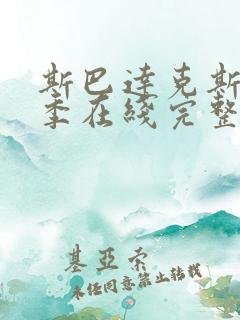 斯巴达克斯
季在线完整
基亚索
未经同意禁止转载